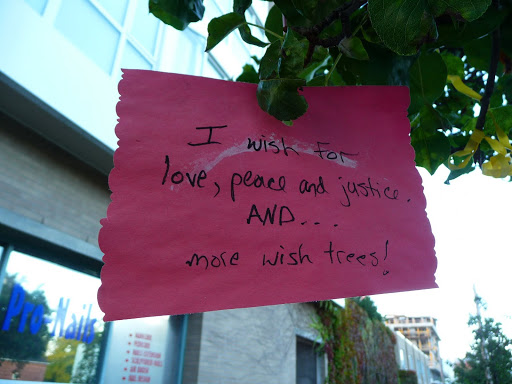 I wish for
love, peace and justice.
AND...
more wish trees!
Pro Nails